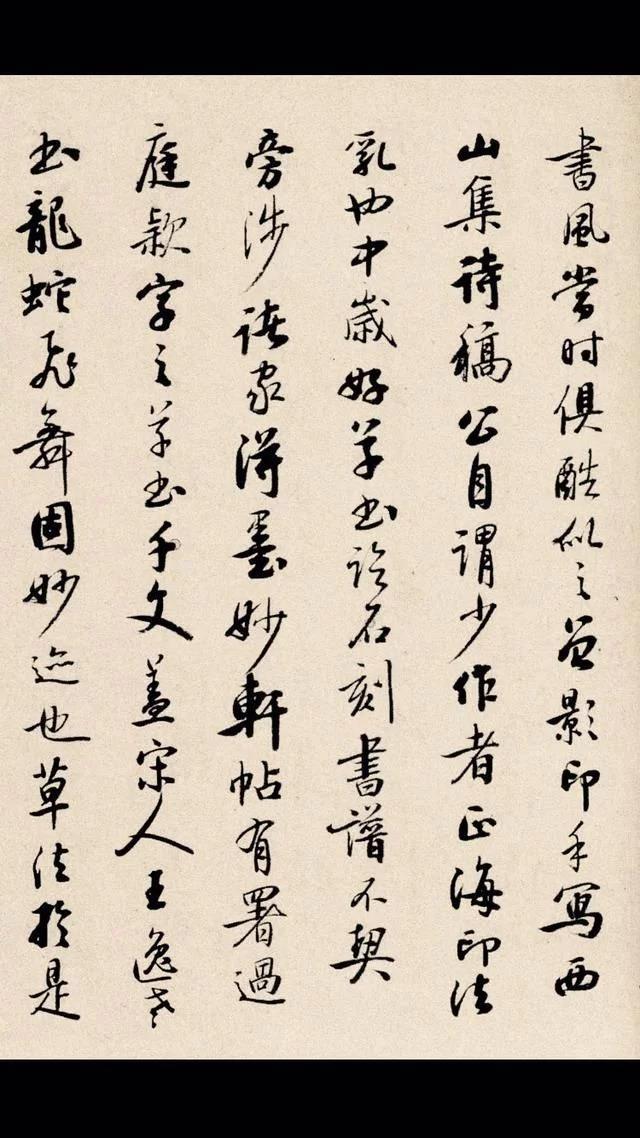 書風當时俱酷似之曾影印手寫西
山集詩稿公自謂少作者正海印法
乳也中歲好草书詒石刻書譜不契
旁涉诸家得墨妙軒帖有署過
庭款字之草书千文蓋宋人王逸老
书龍蛇飛舞固妙迹也草法於是